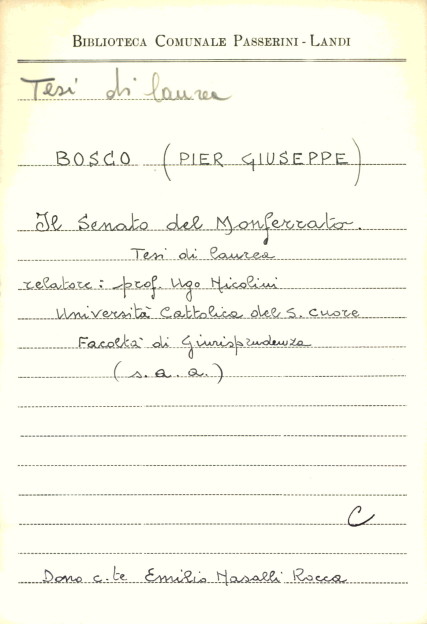 BIBLIOTECA COMUNALE PASSERINI - LANDI
Tesi di laurea
BOSCO (PIER GIUSEPPE)
Il Senato del Monferrato.
Tesi di laurea
relatore: prof. Ugo Nicolini
Università Cattolica del S. Cuore
Facoltà di Giurisprudenza
(s. a. a.)
C
Dono c.te Emilio Nasalli Rocca